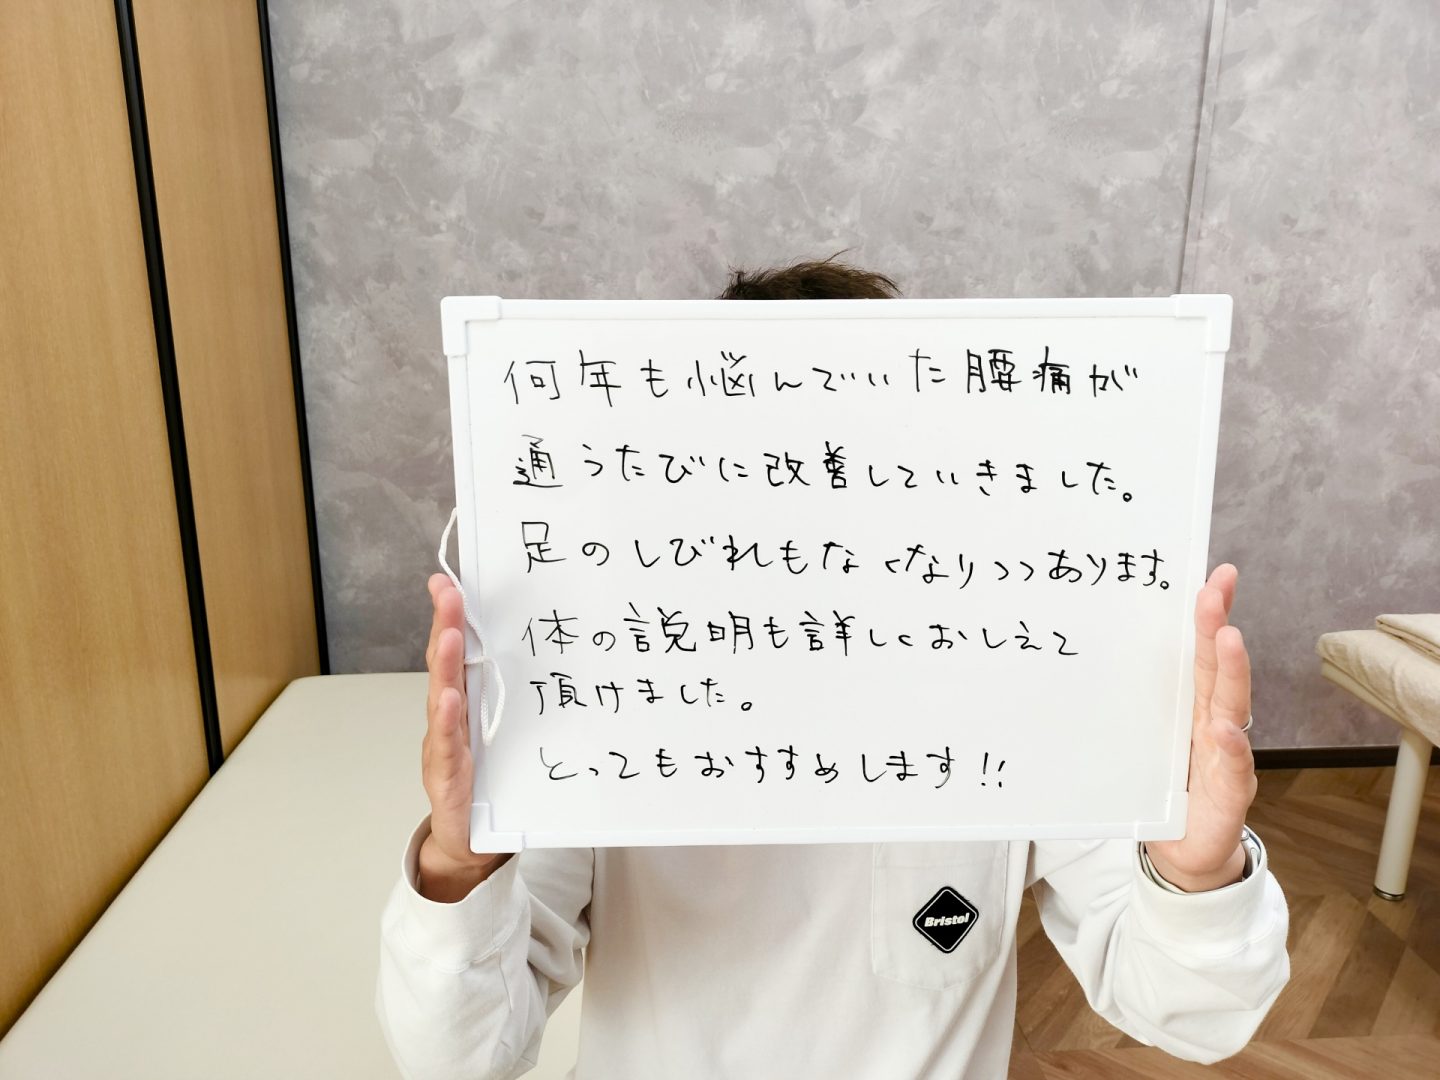 何年も悩んでいた腰痛が
通うたびに改善していきました。
足のしびれもなくなりつつあります。
体の説明も詳しくおしえて
頂けました。
とってもおすすめします!!
Bristol